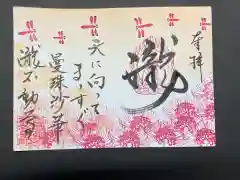 奉拝
瀧
天に向って
まっすぐ
曼珠沙華
瀧不動尊